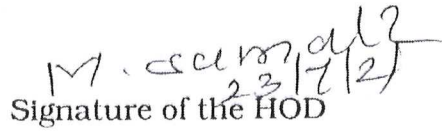 M.
23/7/21
Signature of the HOD